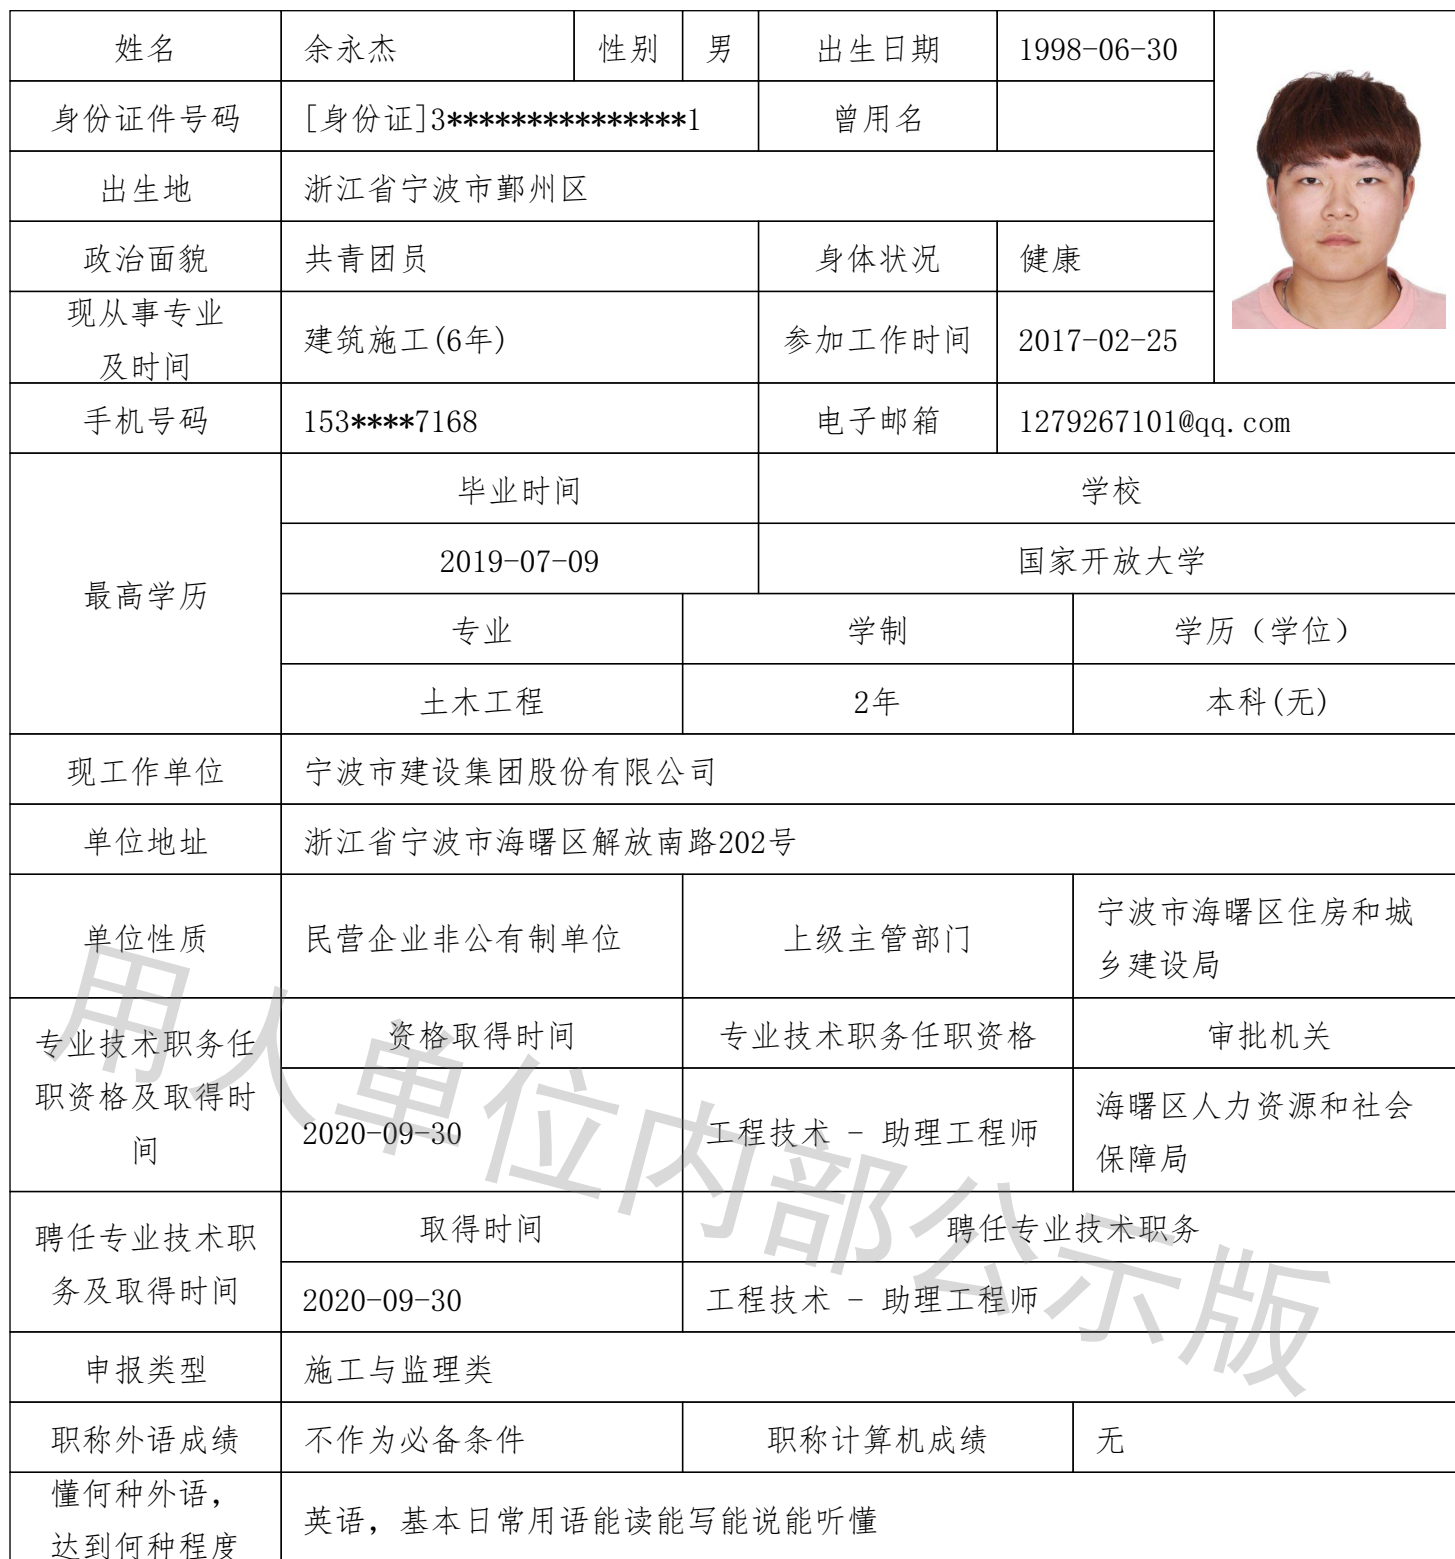 姓名 余永杰 性别 男 出生日期 1998-06-30
身份证件号码 [身份证]3***************1 曾用名
出生地 浙江省宁波市鄞州区
政治面貌 共青团员 身体状况 健康
现从事专业
及时间 建筑施工(6年) 参加工作时间 2017-02-25
手机号码 153****7168 电子邮箱 1279267101@qq.com
最高学历
毕业时间 学校
2019-07-09 国家开放大学
专业 学制 学历（学位）
土木工程 2年 本科(无)
现工作单位 宁波市建设集团股份有限公司
单位地址 浙江省宁波市海曙区解放南路202号
单位性质 民营企业非公有制单位 上级主管部门 宁波市海曙区住房和城
乡建设局
专业技术职务任
职资格及取得时
间
资格取得时间 专业技术职务任职资格 审批机关
2020-09-30 工程技术 - 助理工程师 海曙区人力资源和社会
保障局
聘任专业技术职
务及取得时间
取得时间 聘任专业技术职务
2020-09-30 工程技术 - 助理工程师
申报类型 施工与监理类
职称外语成绩 不作为必备条件 职称计算机成绩 无
懂何种外语，
达到何种程度 英语，基本日常用语能读能写能说能听懂
用人单位内部公示版